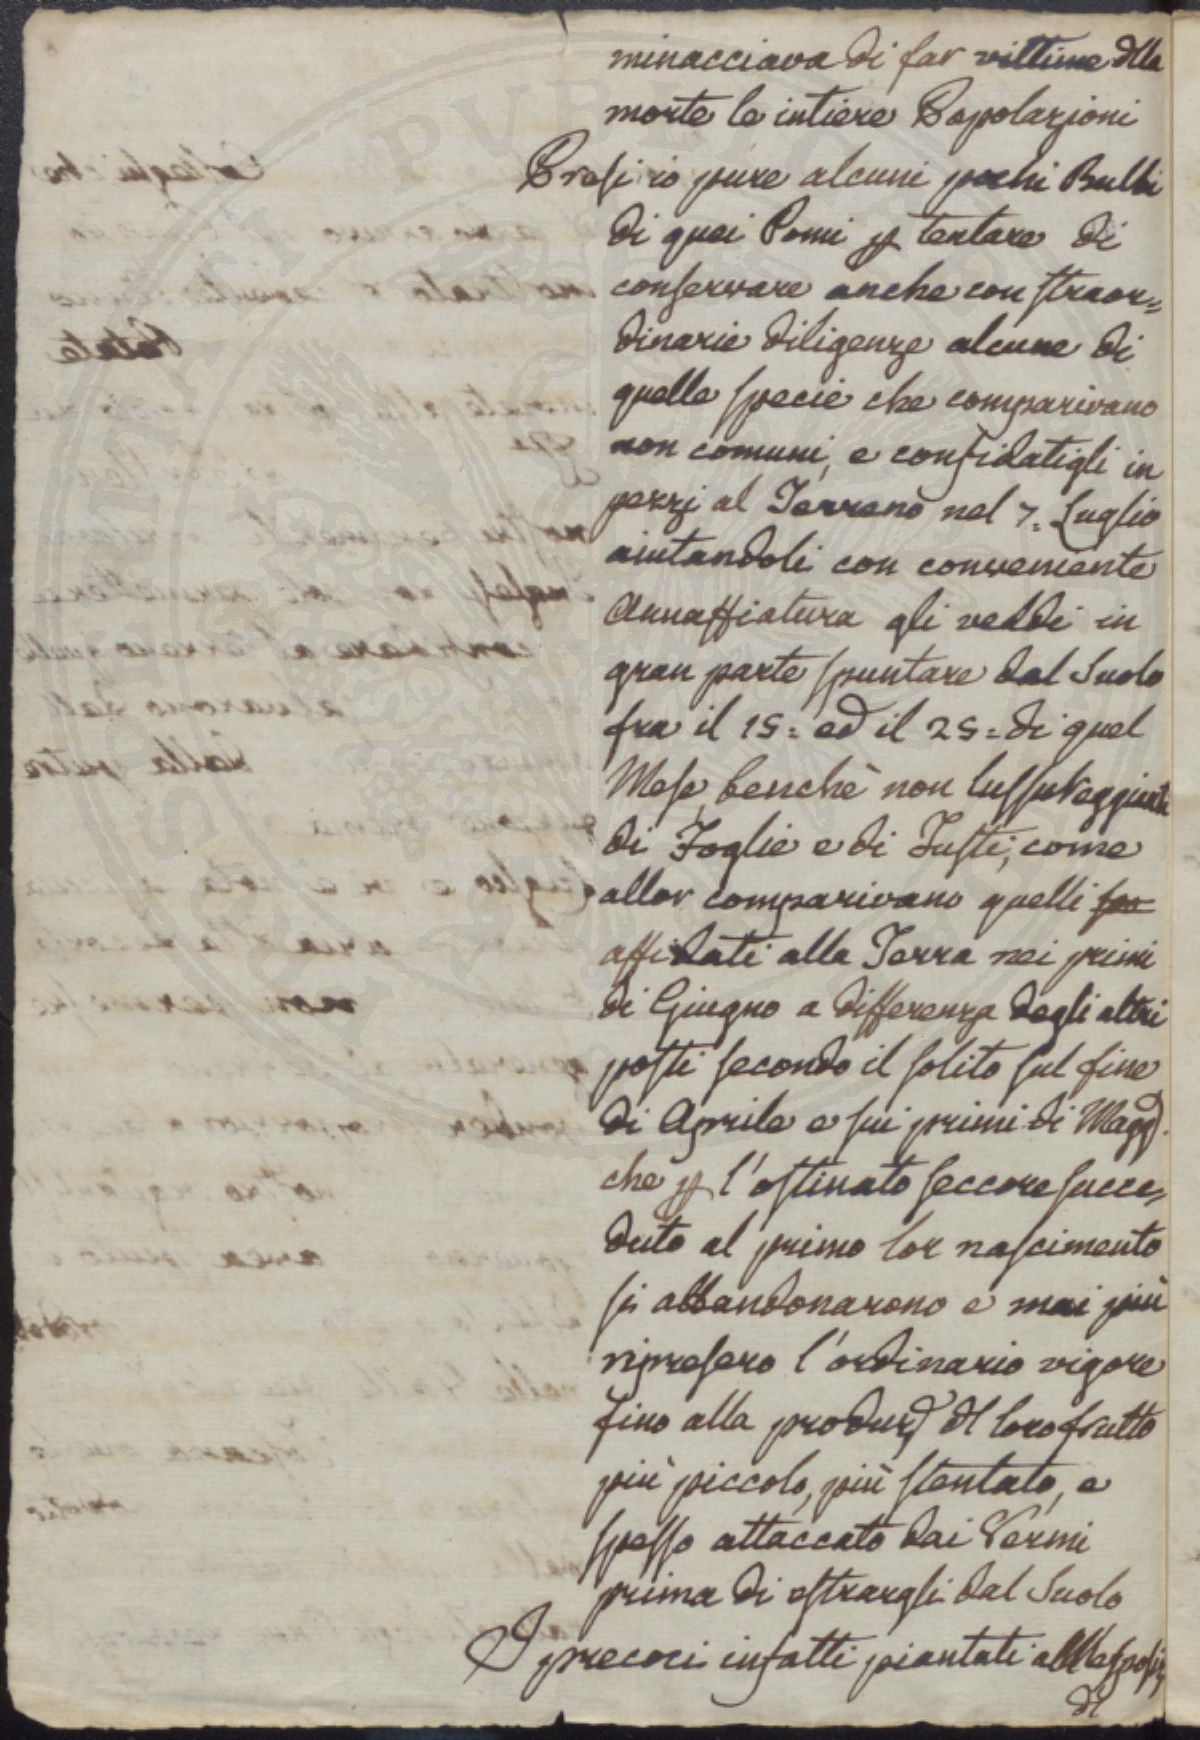 minacciava di far vittime dlla
morte le intiere Popolazioni
Presi io pure alcuni pochi Bulbi
di quei Pomi p tentare di
conservare anche con straor=
dinarie diligenze alcune di
quelle specie che comparivano
non comuni, e confidatigli in
pezzi al Terreno nel 7. Luglio
aiutandoli con conveniente
Annaffiatura gli veddi in
gran parte spuntare dal Suolo
fra il 15= ed il 25= di quel
Mese, benchè non lussureggianti
di Foglie e di Fusti, come
allor comparivano quelli
affidati alla Terra nei primi
di Giugno a differenza degli altri
posti secondo il solito sul fine
di Aprile e sui primi di Magg.
che p l'ostinato seccore succe=
duto al primo lor nascimento
si abbandonarono e mai più
ripresero l'ordinario vigore
fino alla produz dl loro frutto
più piccolo, più stentato, e
spesso attaccato dai Vermi
prima di estrargli dal Suolo
I precoci infatti piantati all'esposiz
di